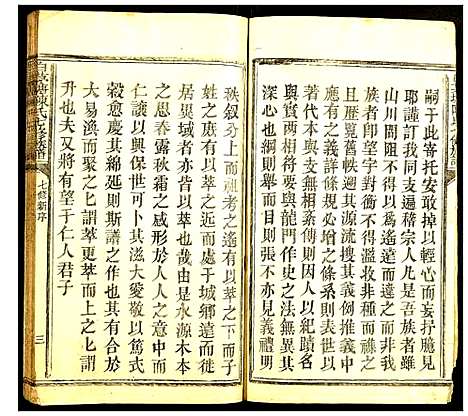 嗣于此寄托安敢掉以輕心而妄抒臆見
耶謹訂我同支遍稽宗人凡吾族者雖
山川間阻不得以爲遙遠而畧之非吾
族者即堂對衡不得濫收非種而祿之
且歷覧舊帙其源流搜其義例推義中
應有之義詳條中之條系表則系以世
代本與支無相紊傳則因人以紀蹟名
著者與要龍門作史之法無異其
目則張不亦見義禮明
秩叙分上而祖考之遙有以萃之下而子
姓之庶有以萃之近而處于城鄉遠而行
居異域者亦有以萃之由是水源木本
之思春露秋霜之感形於人人之意中而
仁讓以興保世可卜其滋大愛敬以篤式
穀愈慶其綿延則斯譜之作也其有合於
大易渙而聚之上謂萃萃而上之上謂
升也夫又將有望于仁人君子
陳氏七修族譜
七修新序
三